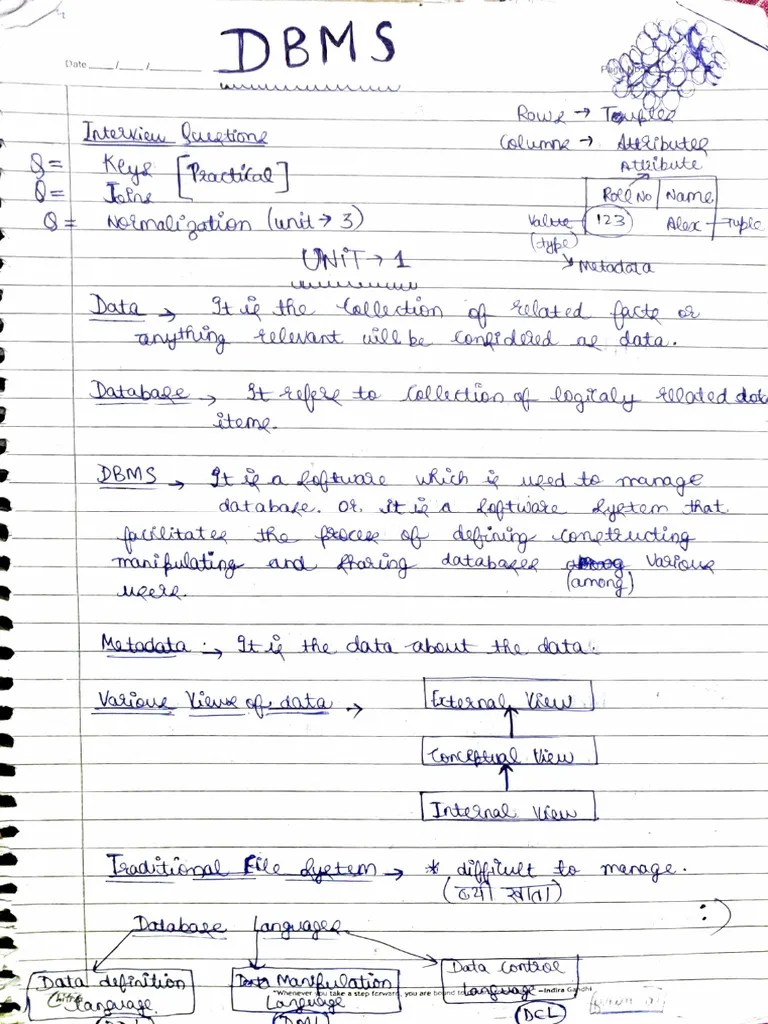 DBMS
Date ___/___/______
Rows → Touples
Columns → Attributes
Attribute
Roll No | Name
Value 123 Alex → Tuple
(type)
Metadata
Interview Questions
Q = Keys [Practical]
Q = Joins
Q = Normalization (unit → 3)
UNIT → 1
Data → It is the collection of related facts or
anything relevant will be considered as data.
Database → It refers to collection of logicaly rellated data
items.
DBMS → It is a software which is used to manage
database. or. it is a software system that
facilitates the process of defining constructing
manipulating and sharing databases various
(among)
users.
Metadata :→ It is the data about the data.
Various Views of data →
External View
Conceptual View
Internal View
Traditional File System → * difficult to manage.
:)
Database Languages
Data definition
Language
Data Manipulation
Language
(DML)
Data Control
Language
(DCL)
"Whenever you take a step forward, you are bound –Indira Gandhi